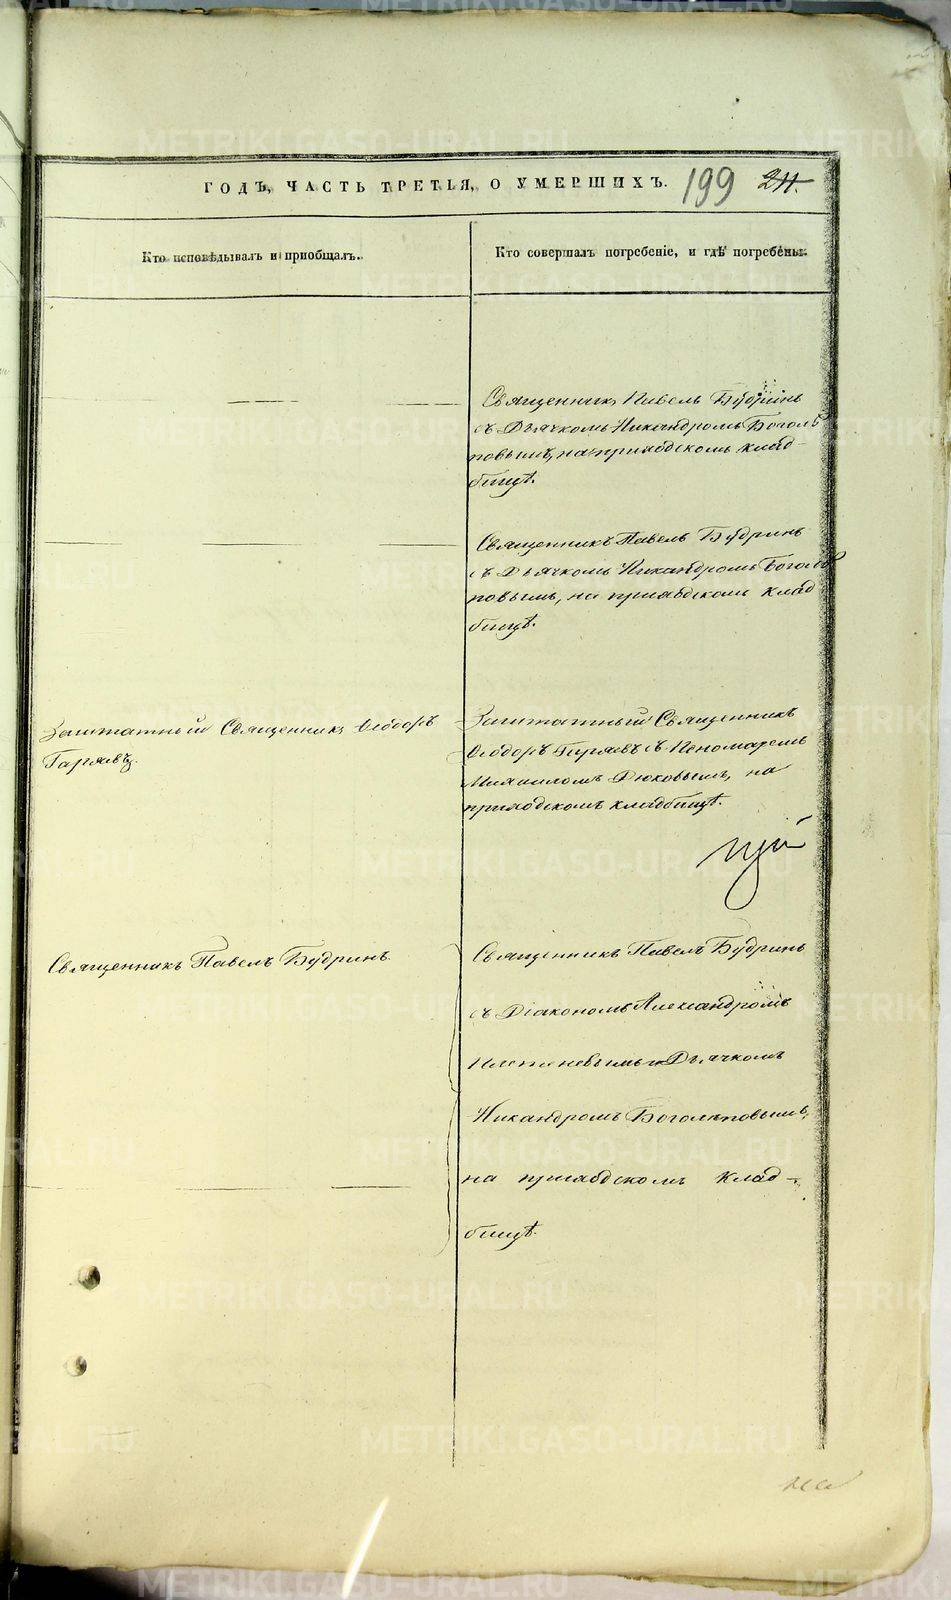 ГОДЪ, ЧАСТЬ ТРЕТІЯ, О УМЕРШИХЪ. 199 211.
Кто исповѣдывалъ и пріобщалъ.
Кто совершалъ погребеніе, и гдѣ погребены.
Священникъ Павелъ Будринъ
съ Дьячкомъ Никандромъ Боголѣ
повымъ, на приходскомъ клад-
бищѣ.
Священникъ Павелъ Будринъ
съ Дьячкомъ Никандромъ Боголѣ
повымъ, на приходскомъ клад
бищѣ.
Заштатный Священникъ Ѳеодоръ
Гаряевъ.
Заштатный Священникъ
Ѳеодоръ Гаряевъ съ Пономаремъ
Михаиломъ Дюковымъ, на
приходскомъ кладбищѣ.
Священникъ Павелъ Будринъ
Священникъ Павелъ Будринъ
съ Діакономъ Александромъ
Плетеневымъ и Дьячкомъ
Никандромъ Боголѣповымъ,
на приходскомъ клад-
бищѣ.
METRIKI.GASO-URAL.RU